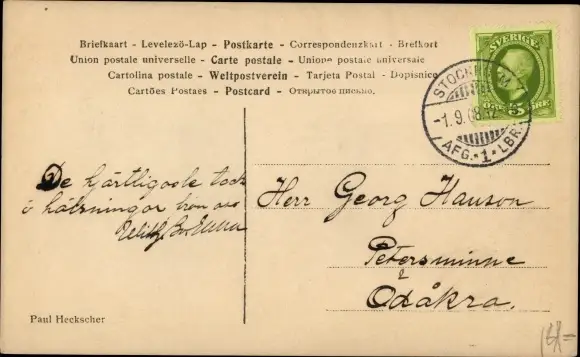 Briefkaart - Levelezö-Lap - Postkarte - Correspondenzkart - Brefkort
Union postale universelle - Carte postale - Unione postale universale
Cartolina postale - Weltpostverein - Tarjeta Postal - Dopisnice
Cartões Postaes - Postcard - Открытое письмо.
SVERIGE
5 ÖRE
STOCKHOLM
-1.9.08
AFG. 1 LBR.
De hjärtligaste tack
o hälsningar från oss
Herr Georg Hanson
Petersminne
Ödåkra.
Paul Heckscher